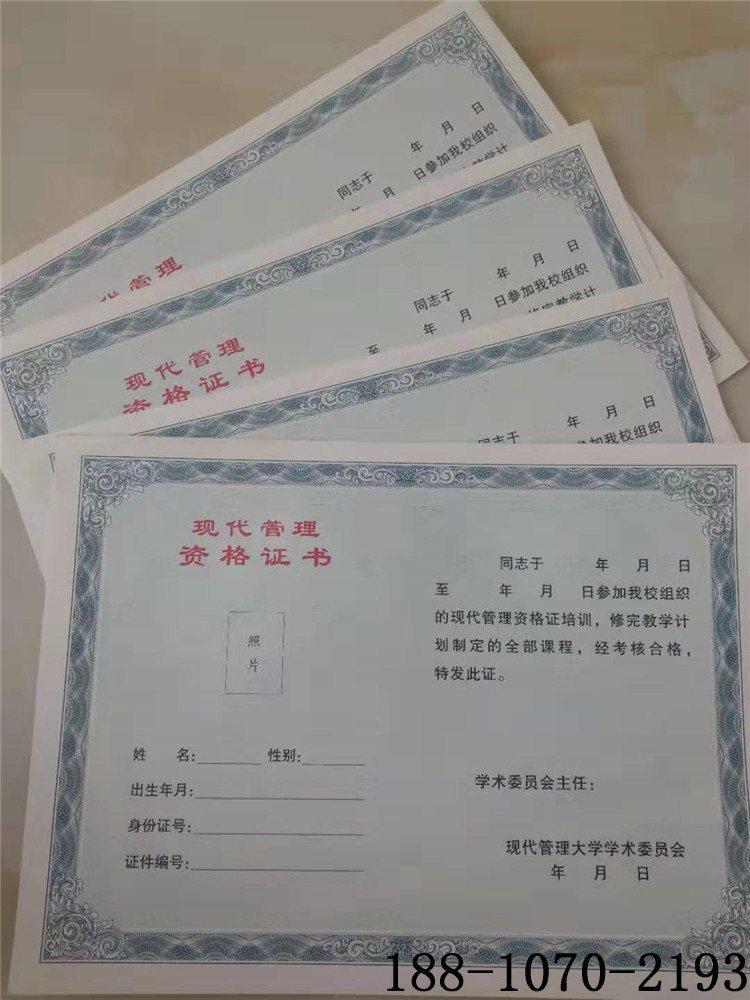 年 月 日
同志于
年 月 日参加我校组织
代管理
年 月 日
同志于
年 月 日参加我校组织
至
修完教学计
现代管理
资格证书
年 月 日
同志于
参加我校组织
现代管理
资格证书
照
片
姓 名: 性别:
出生年月:
身份证号:
证件编号:
同志于 年 月 日
至 年 月 日参加我校组织
的现代管理资格证培训，修完教学计
划制定的全部课程，经考核合格，
特发此证。
学术委员会主任:
现代管理大学学术委员会
年 月 日
188-1070-2193